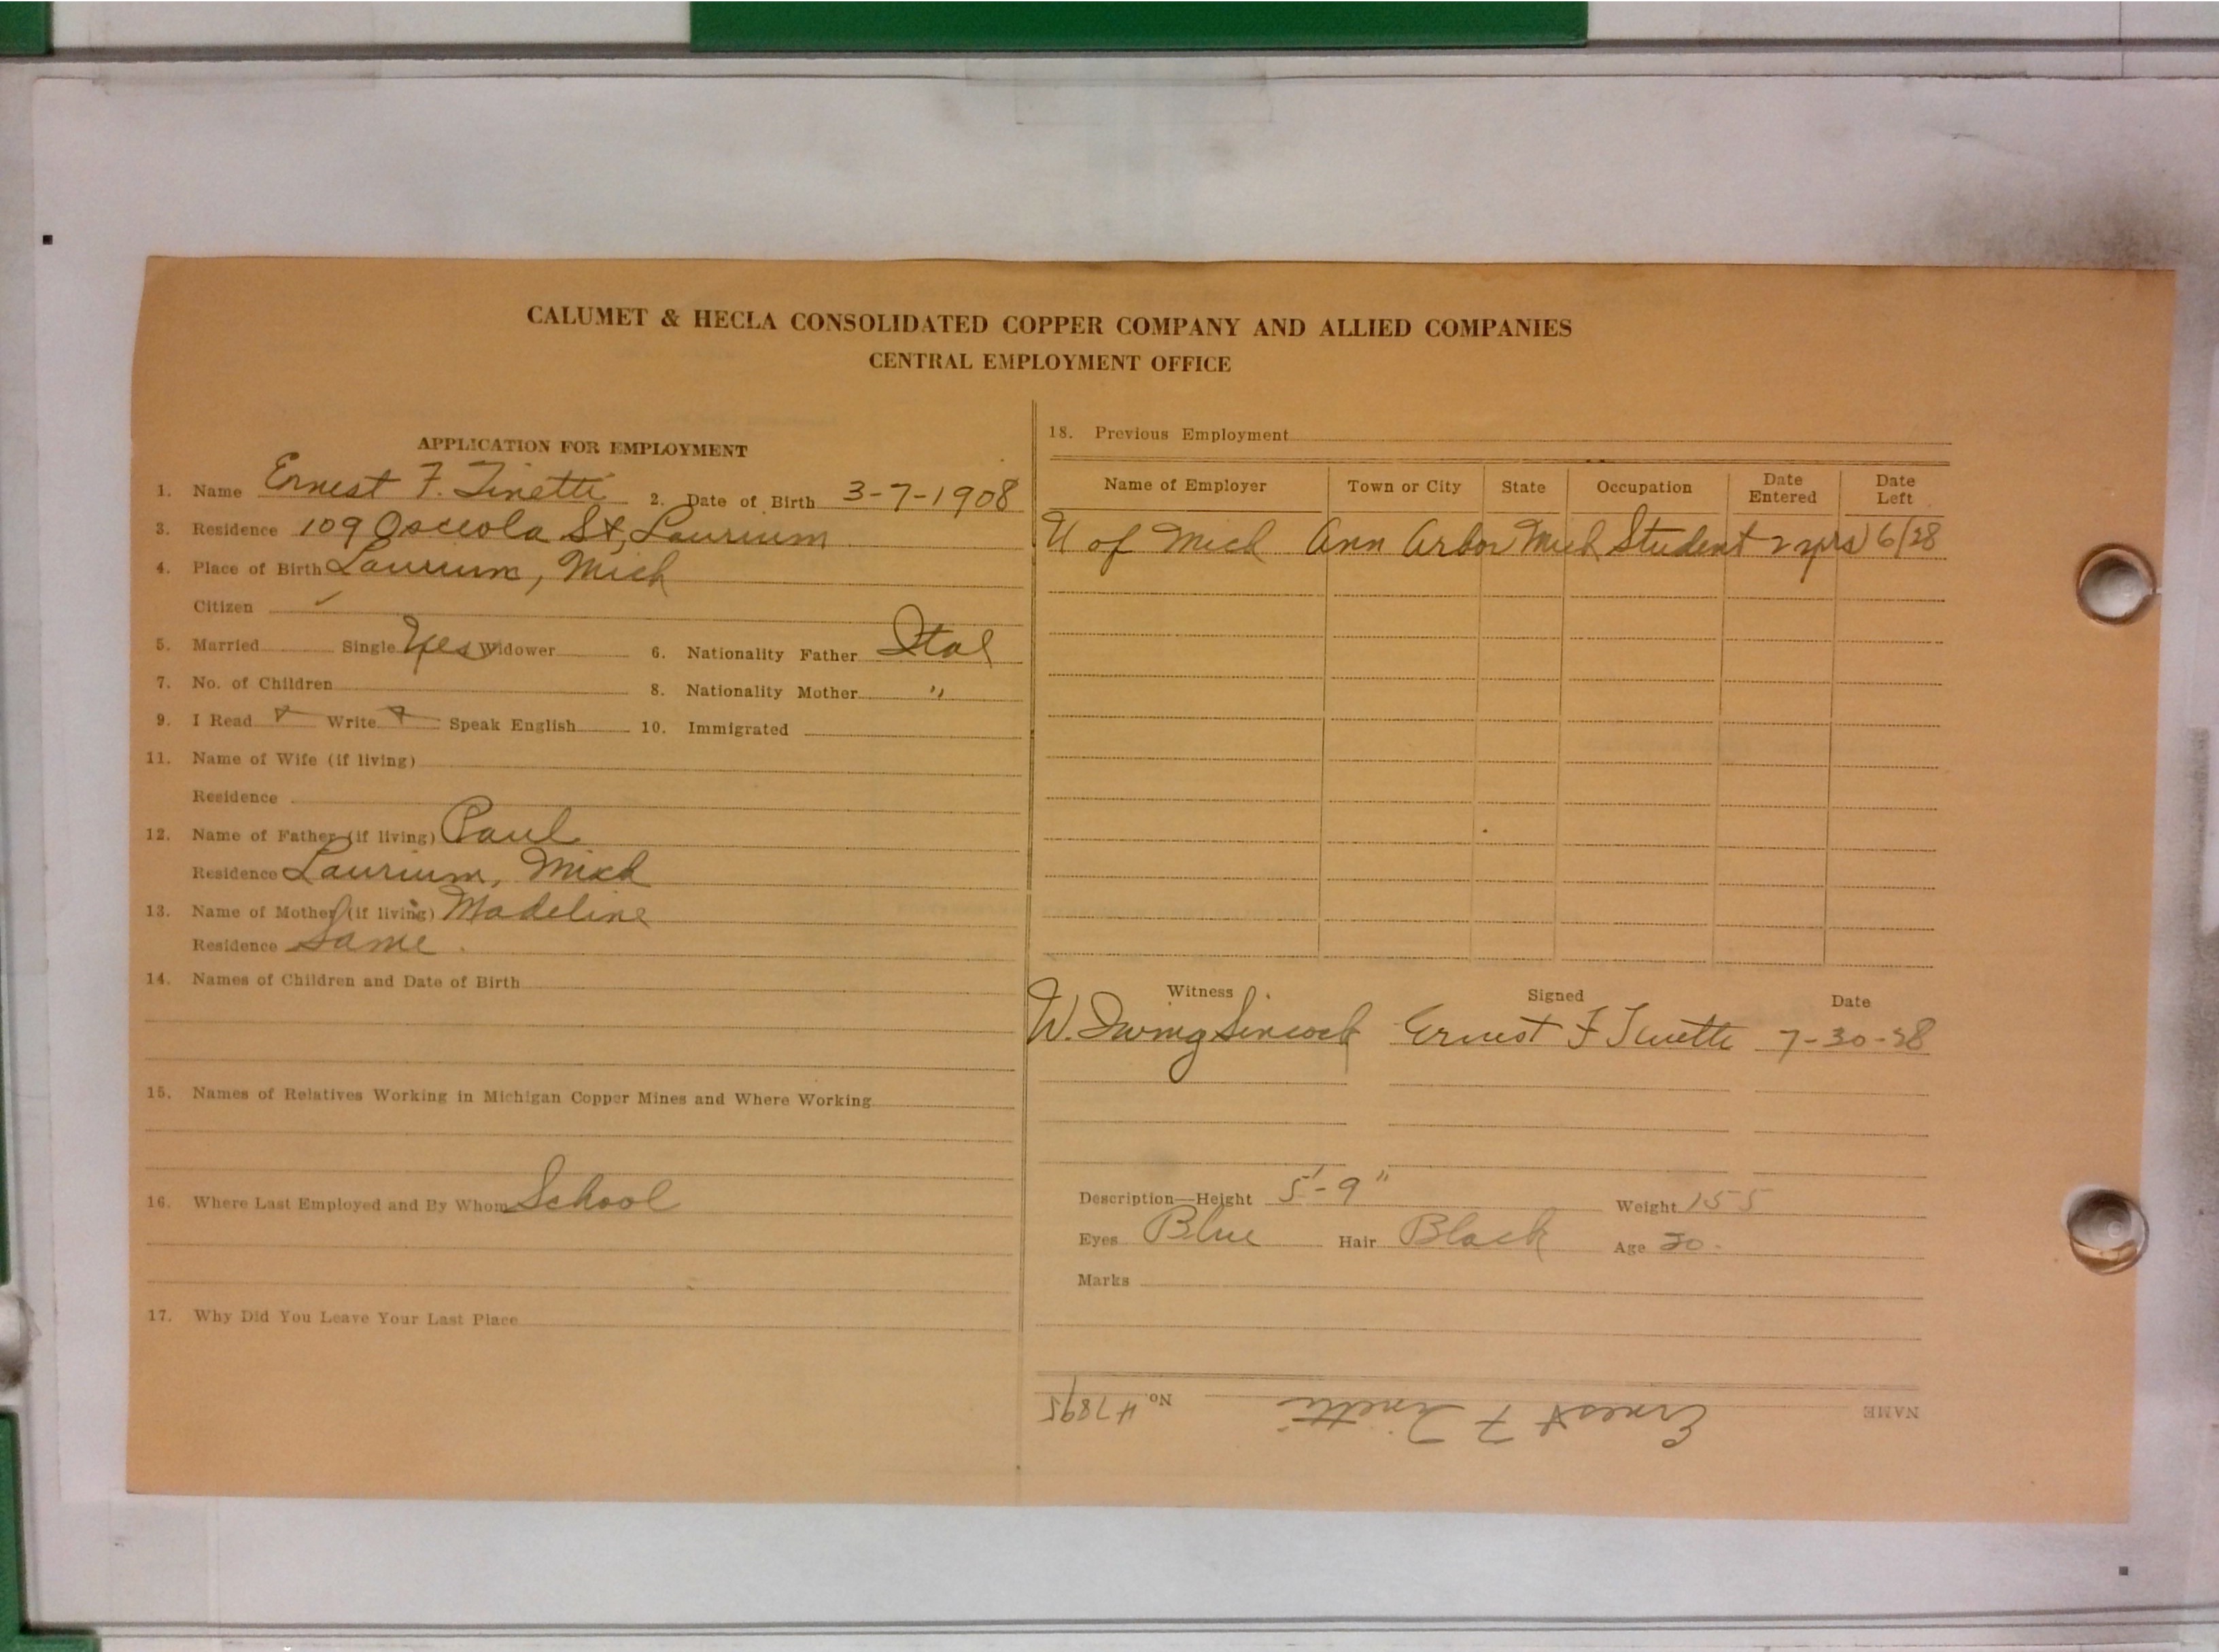 CALUMET & HECLA CONSOLIDATED COPPER COMPANY AND ALLIED COMPANIES
CENTRAL EMPLOYMENT OFFICE
APPLICATION FOR EMPLOYMENT
1. Name Ernest F. Tinetti 2. Date of Birth 3-7-1908
3. Residence 109 Osceola St, Laurium
4. Place of Birth Laurium, Mich
Citizen ✓
5. Married Single Yes Widower 6. Nationality Father Ital
7. No. of Children 8. Nationality Mother "
9. I Read ✓ Write ✓ Speak English 10. Immigrated
11. Name of Wife (if living)
Residence
12. Name of Father (if living) Paul
Residence Laurium, Mich
13. Name of Mother (if living) Madeline
Residence Same.
14. Names of Children and Date of Birth
15. Names of Relatives Working in Michigan Copper Mines and Where Working
16. Where Last Employed and By Whom School
17. Why Did You Leave Your Last Place
18. Previous Employment
Name of Employer Town or City State Occupation Date Entered Date Left
U of Mich Ann Arbor Mich Student 2 yrs 6/28
Witness Signed Date
W. Irving Sincock Ernest F Tinetti 7-30-28
Description—Height 5'-9" Weight 155
Eyes Blue Hair Black Age 20.
Marks
NAME Ernest F Tinetti No. 47895